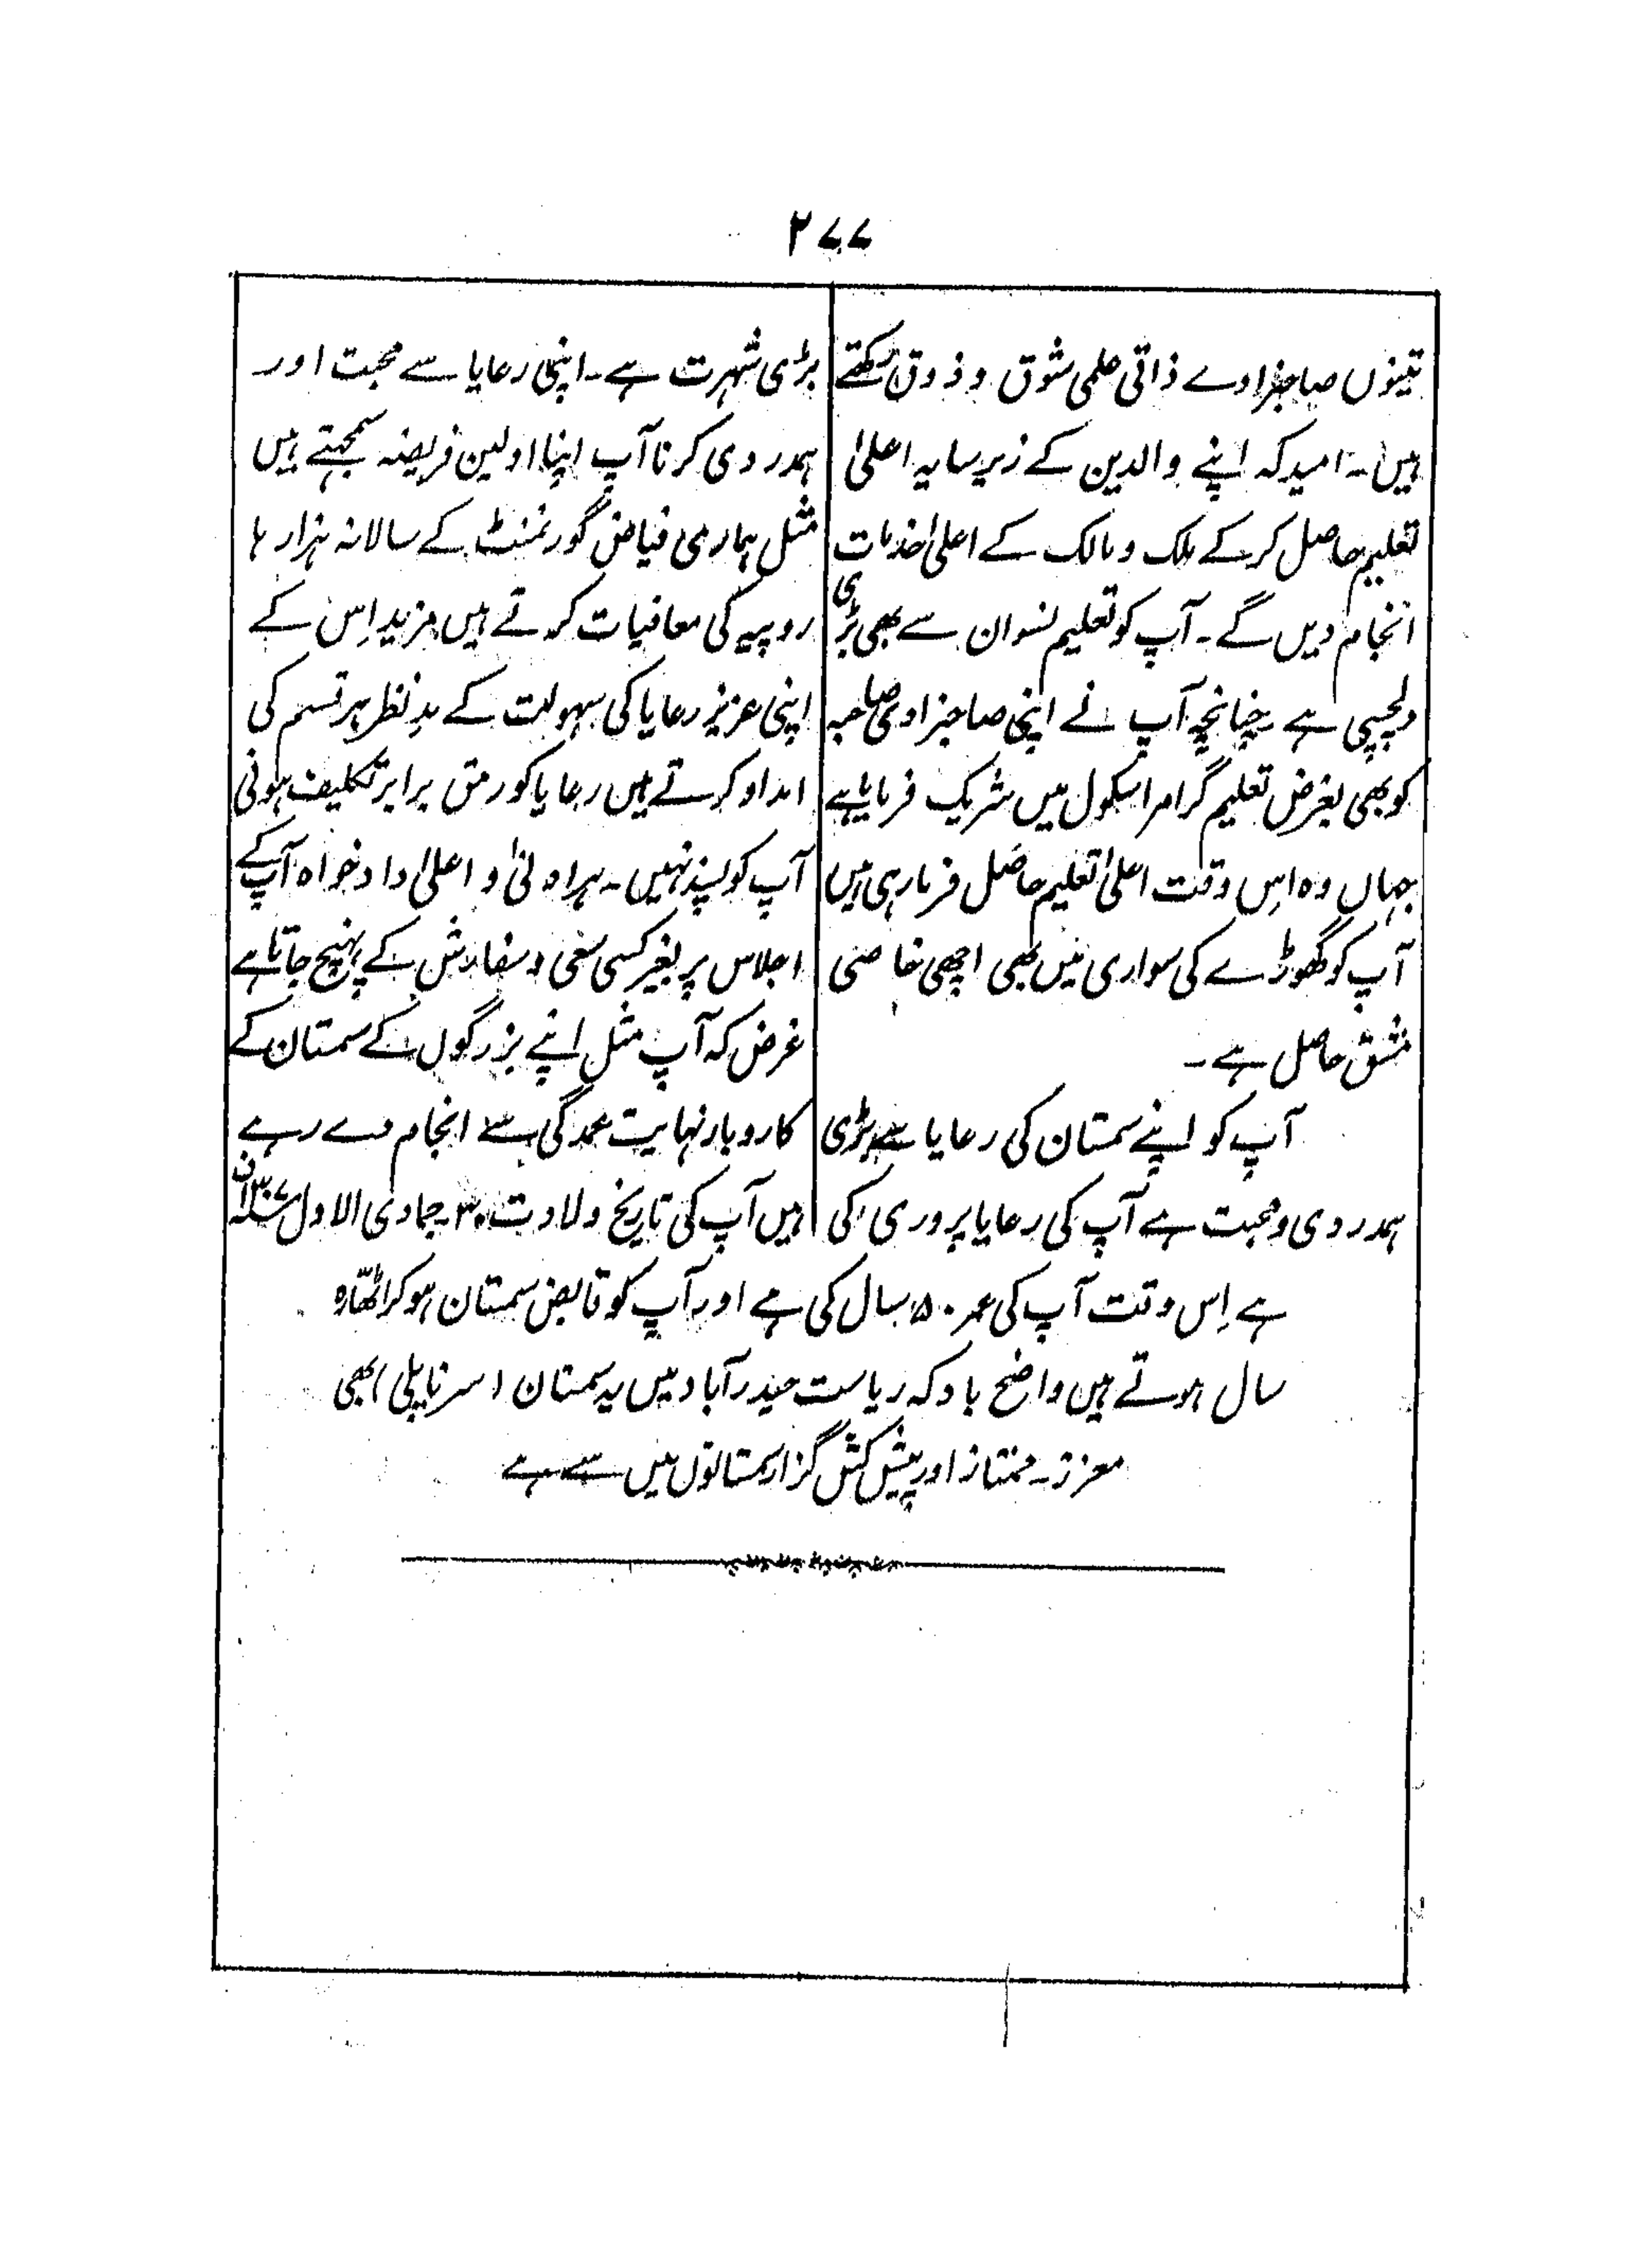 ۲۷۷
تینوں صاحبزادے ذاتی علمی شوق و ذوق رکھتے
ہیں۔ امید کہ اپنے والدین کے زیر سایہ اعلیٰ
تعلیم حاصل کر کے ملک و مالک کے اعلیٰ خدمات
انجام دیں گے۔ آپ کو تعلیم نسوان سے بھی بڑی
دلچسپی ہے چنانچہ آپ نے اپنی صاحبزادی صاحبہ
کو بھی بغرض تعلیم گرامر اسکول میں شریک فرمایا ہے
جہاں وہ اِس وقت اعلیٰ تعلیم حاصل فرما رہی ہیں
آپ کو گھوڑے کی سواری میں بھی اچھی خاصی
مشق حاصل ہے۔
آپ کو اپنے سمستان کی رعایا سے بڑی
ہمدردی و محبت ہے آپ کی رعایا پروری کی
بڑی شہرت ہے۔ اپنی رعایا سے محبت اور
ہمدردی کرنا آپ اپنا اولین فریضہ سمجہتے ہیں
مثل ہماری فیاض گورنمنٹ کے سالانہ ہزار ہا
روپیہ کی معافیات کرتے ہیں مزید اِس کے
اپنی عزیز رعایا کی سہولت کے مدِ نظر ہر قسم کی
امداد کرتے ہیں رعایا کو رمق برابر تکلیف ہونی
آپ کو پسند نہیں۔ ہر ادنیٰ و اعلیٰ داد خواہ آپ کے
اجلاس پر بغیر کسی سعی و سفارش کے پہنچ جاتا ہے
غرض کہ آپ مثل اپنے بزرگوں کے سمستان کے
کاروبار نہایت عمدگی سے انجام دے رہے
ہیں آپ کی تاریخ ولادت ۳۰۔ جمادی الاول ۱۳۰۷
ہے اِس وقت آپ کی عمر ۵۰ سال کی ہے اور آپ کو قابض سمستان ہو کر اٹھّارہ
سال ہوتے ہیں واضح باد کہ ریاست حیدرآباد میں یہ سمستان (سرناپلی) بھی
معزز۔ ممتاز اور پیش کش گزار سمستانوں میں سے ہے